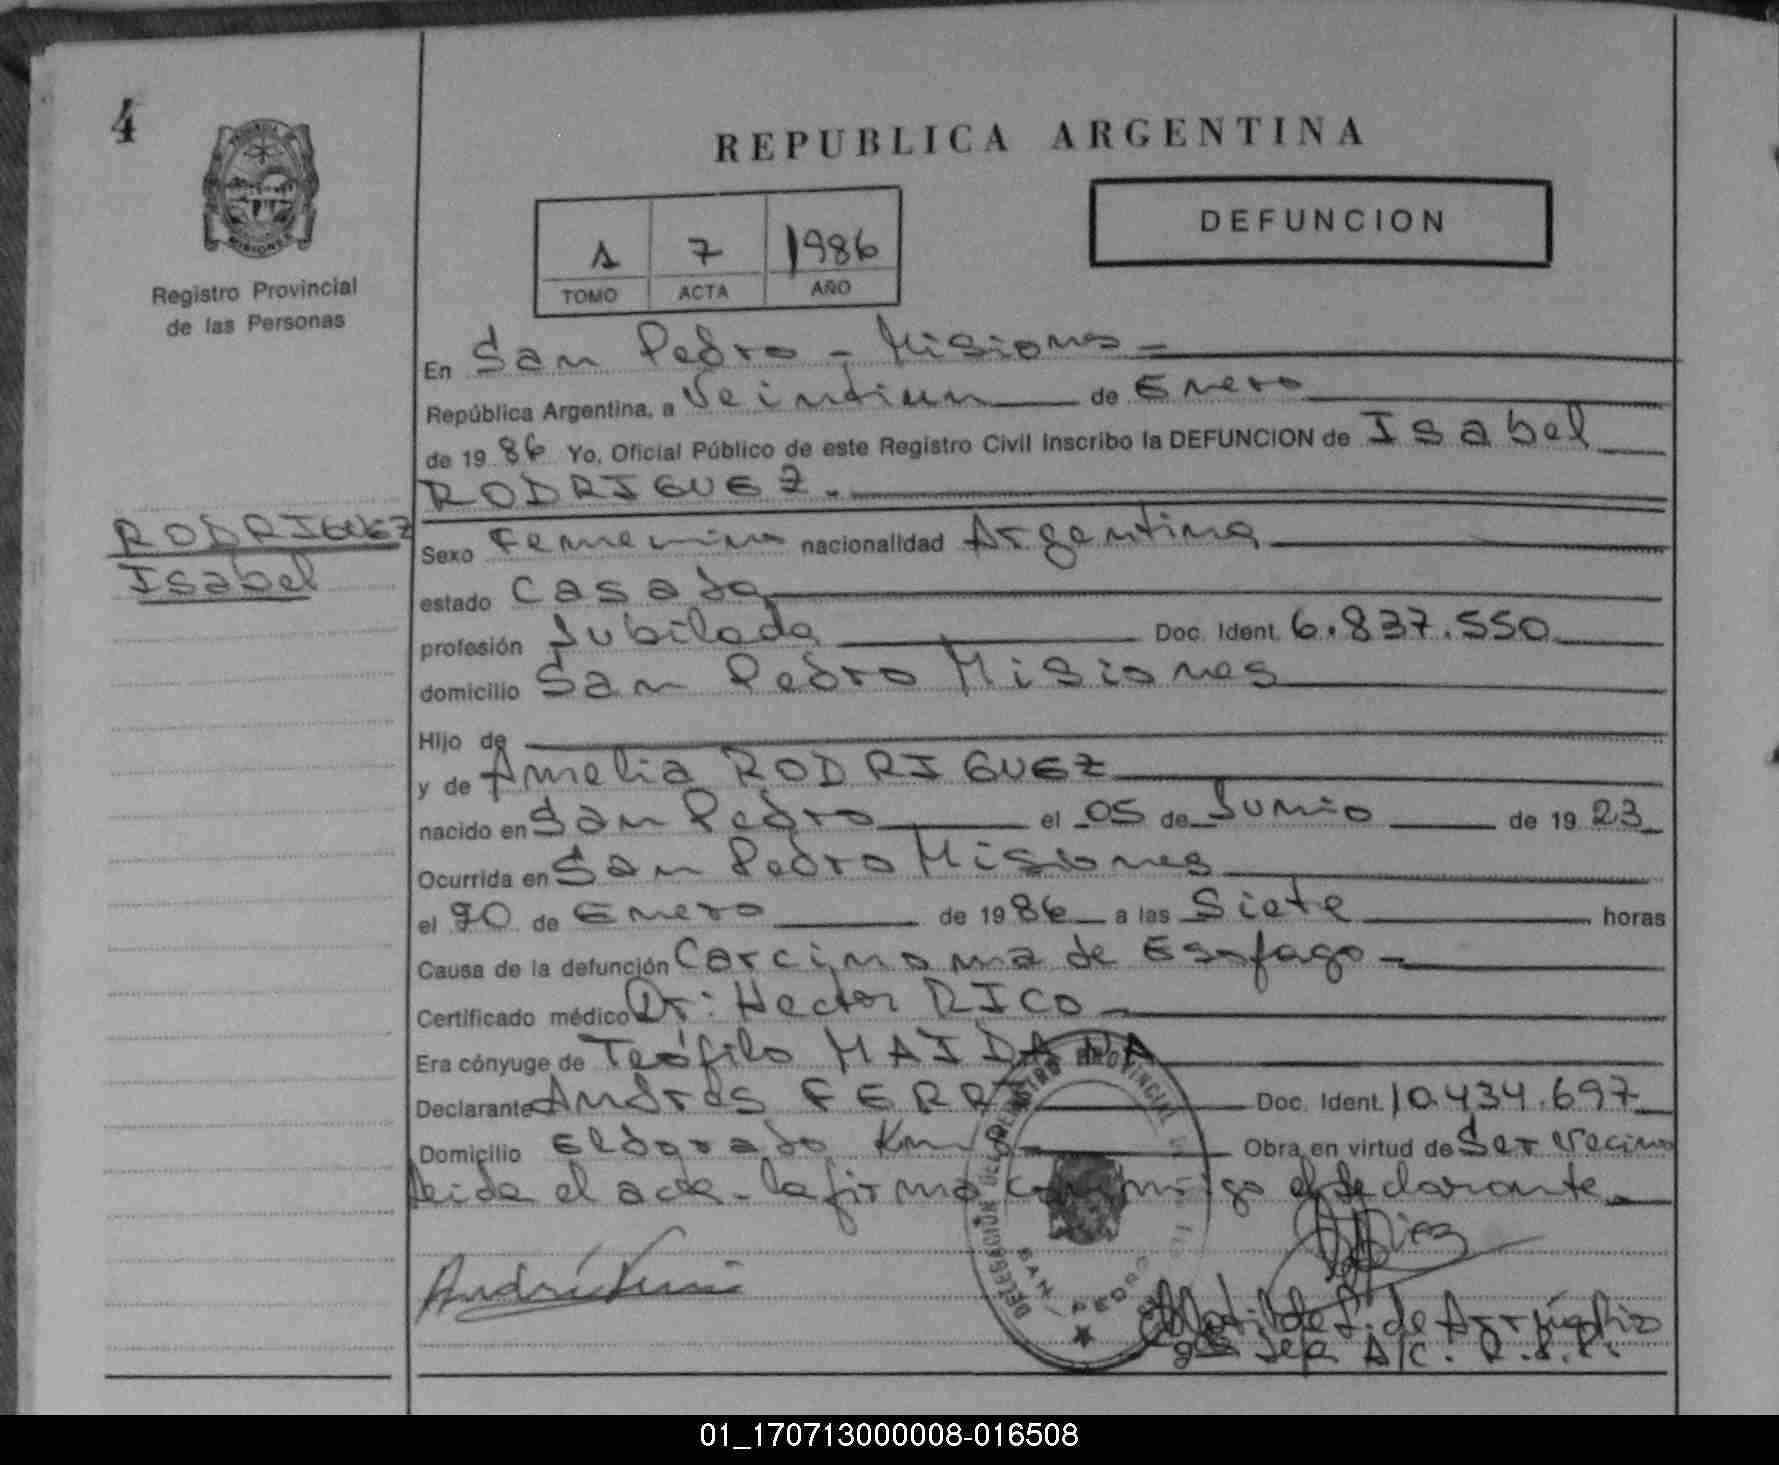 4
REPUBLICA ARGENTINA
DEFUNCION
1 7 1986
TOMO ACTA AÑO
MISIONES
Registro Provincial
de las Personas
En San Pedro - Misiones =
República Argentina, a Veintiun de Enero
de 1986 Yo, Oficial Público de este Registro Civil inscribo la DEFUNCION de Isabel
RODRIGUEZ.
RODRIGUEZ
Isabel
Sexo Femenino nacionalidad Argentina
estado Casada
profesión Jubilada Doc. Ident. 6.837.550
domicilio San Pedro Misiones
Hijo de
y de Amelia RODRIGUEZ
nacido en San Pedro el 05 de Junio de 1923
Ocurrida en San Pedro Misiones
el de Enero de 1986 a las Siete horas
Causa de la defunción Carcinoma de Esofago -
Certificado médico Dr: Hector RICO -
Era cónyuge de Teófilo MAIDANA
Declarante Andrés FERRI Doc. Ident. 10.434.697
Domicilio Eldorado Km 8 Obra en virtud de Ser vecino
leida el acta - la firma conmigo el declarante
DELEGACION DEL REGISTRO PROVINCIAL
SAN PEDRO
Matilde de
A/C. R.P.P.
01_170713000008-016508